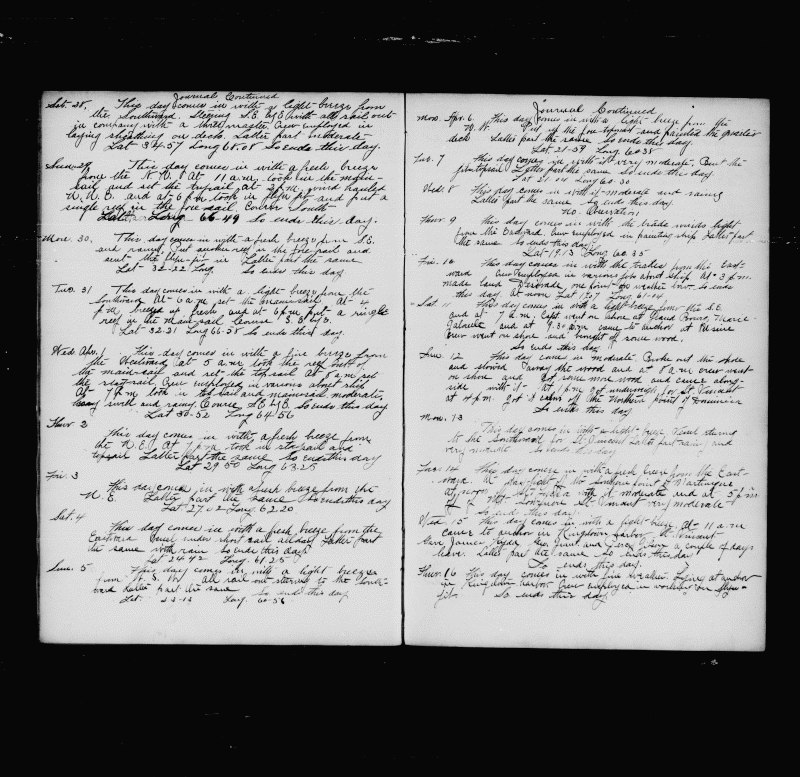 Journal Continued
Sat. 28. This day comes in with a light breeze from
the Southward. Steering S.E. by E with all sail out
in company with a three master Crew employed in
laying sheathing on deck. Latter part moderate.
Lat 34-57 Long 68.08 So ends this day.
Sun. 29 This day comes in with a fresh breeze
from the N.W. At 11 a.m. took in the main-
sail and set the trysail at 2 p.m. wind hauled
N.N.E. and at 6 p.m. took in and put a
single reef in the fore sail Course South
Latt Long 66-49 So ends this day.
Mon. 30. This day comes in with a fresh breeze from S.E.
and rainy. Put another reef in the fore-sail and
sent the in Latter part the same
Lat- 32-22 Long So ends this day
Tues. 31 This day comes in with a light breeze from the
Southward At 6 a.m. set the mainsail. At 4
p.m. breezed up fresh and at 6 p.m. put a single
reef in the main-sail Course S.E. by S.
Lat 32-21 Long 66-28 So ends this day.
Wed. Apr. 1 This day comes in with a fine breeze from
the Westward at 5 a.m. took the reef out of
the main-sail and set the topsail At 8 a.m. set
the staysail. Crew employed in various about ship
At 7 p.m. took in topsail and mainsail moderate,
heavy swell and rainy Course S.E. by E. So ends this day
Lat 30-52 Long 64-56
Thur. 2
This day comes in with a fresh breeze from
the N.E. At 7 p.m. took in staysail and
topsail Latter part the same So ends this day
Lat 29 50 Long 63.25
Fri. 3
This day comes in with a fresh breeze from the
N.E. Latter part the same So ends this day
Lat 27-02 Long 62 20
Sat. 4
This day comes in with a fresh breeze from the
Eastward Vessel under short sail all day Latter part
the same with rain So ends this day
Lat 24 42 Long 61.25
Sun. 5 This day comes in with a light breeze
from W.S.W. all sail out steering to the South-
ward Latter part the same So ends this day
Lat. Long. 60-56
Journal Continued
Mon. Apr. 6 This day comes in with a light breeze from the
N.W. Put up the fore-topmast and painted the quarter
deck Latter part the same So ends this day.
Lat 21-39 Long 60-38
Tue. 7 This day comes in with it very moderate. Bent the
Latter part the same So ends this day
Lat 21 04 Long 60 30
Wed. 8 This day comes in with it moderate and rainy
Latter part the same So ends this day.
No Observation
Thur. 9 This day comes in with the trade winds light
from the Eastward Crew employed in painting ship Latter part
the same So ends this day
Lat 19.13 Long 60 35
Fri. 10 This day comes in with the trades from the East-
ward Crew employed in various jobs about ship At 3 p.m.
made land Desirade one point on weather bow. So ends
this day at noon Lat Long 61-04
Sat. 11 This day comes in with a light breeze from the S.E.
and at 7 a.m. Capt went on shore at Grand Bourg, Marie-
Galante and at 9.30 a.m. came to anchor at
Crew went on shore and bought of some wood.
So ends this day
Sun. 12 This day comes in moderate. Broke out the hold
and stowed away the wood and at 8 a.m. crew went
on shore and got some more wood and came along-
side with it At 1 p.m. got underweigh for St. Vincent
at 4 p.m. got the Northern point of Dominica
So ends this day
Mon. 13
This day comes in with a light breeze Vessel steering
to the Southward for St. Vincent Latter part rainy and
very moderate So ends this day
Tues. 14 This day comes in with a fresh breeze from the East-
ward. At daylight off the point of Martinique
At noon off St. Lucia with it moderate and at 5 p.m.
off St. Vincent very moderate
So ends this day.
Wed. 15 This day comes in with a light breeze At 11 a.m.
came to anchor in Kingstown harbor St. Vincent
Gave a couple of days
leave. Latter part the same So ends this day
So ends this day.
Thur. 16 This day comes in with fine weather. Lying at anchor
in Kingstown harbor Crew employed in working on
So ends this day